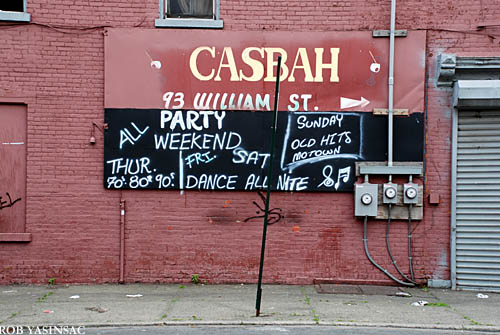 CASBAH
93 WILLIAM ST.
ALL PARTY
WEEKEND
THUR. FRI. SAT
70s 80s 90s DANCE ALL NITE
SUNDAY
OLD HITS
MOTOWN
ROB YASINSAC